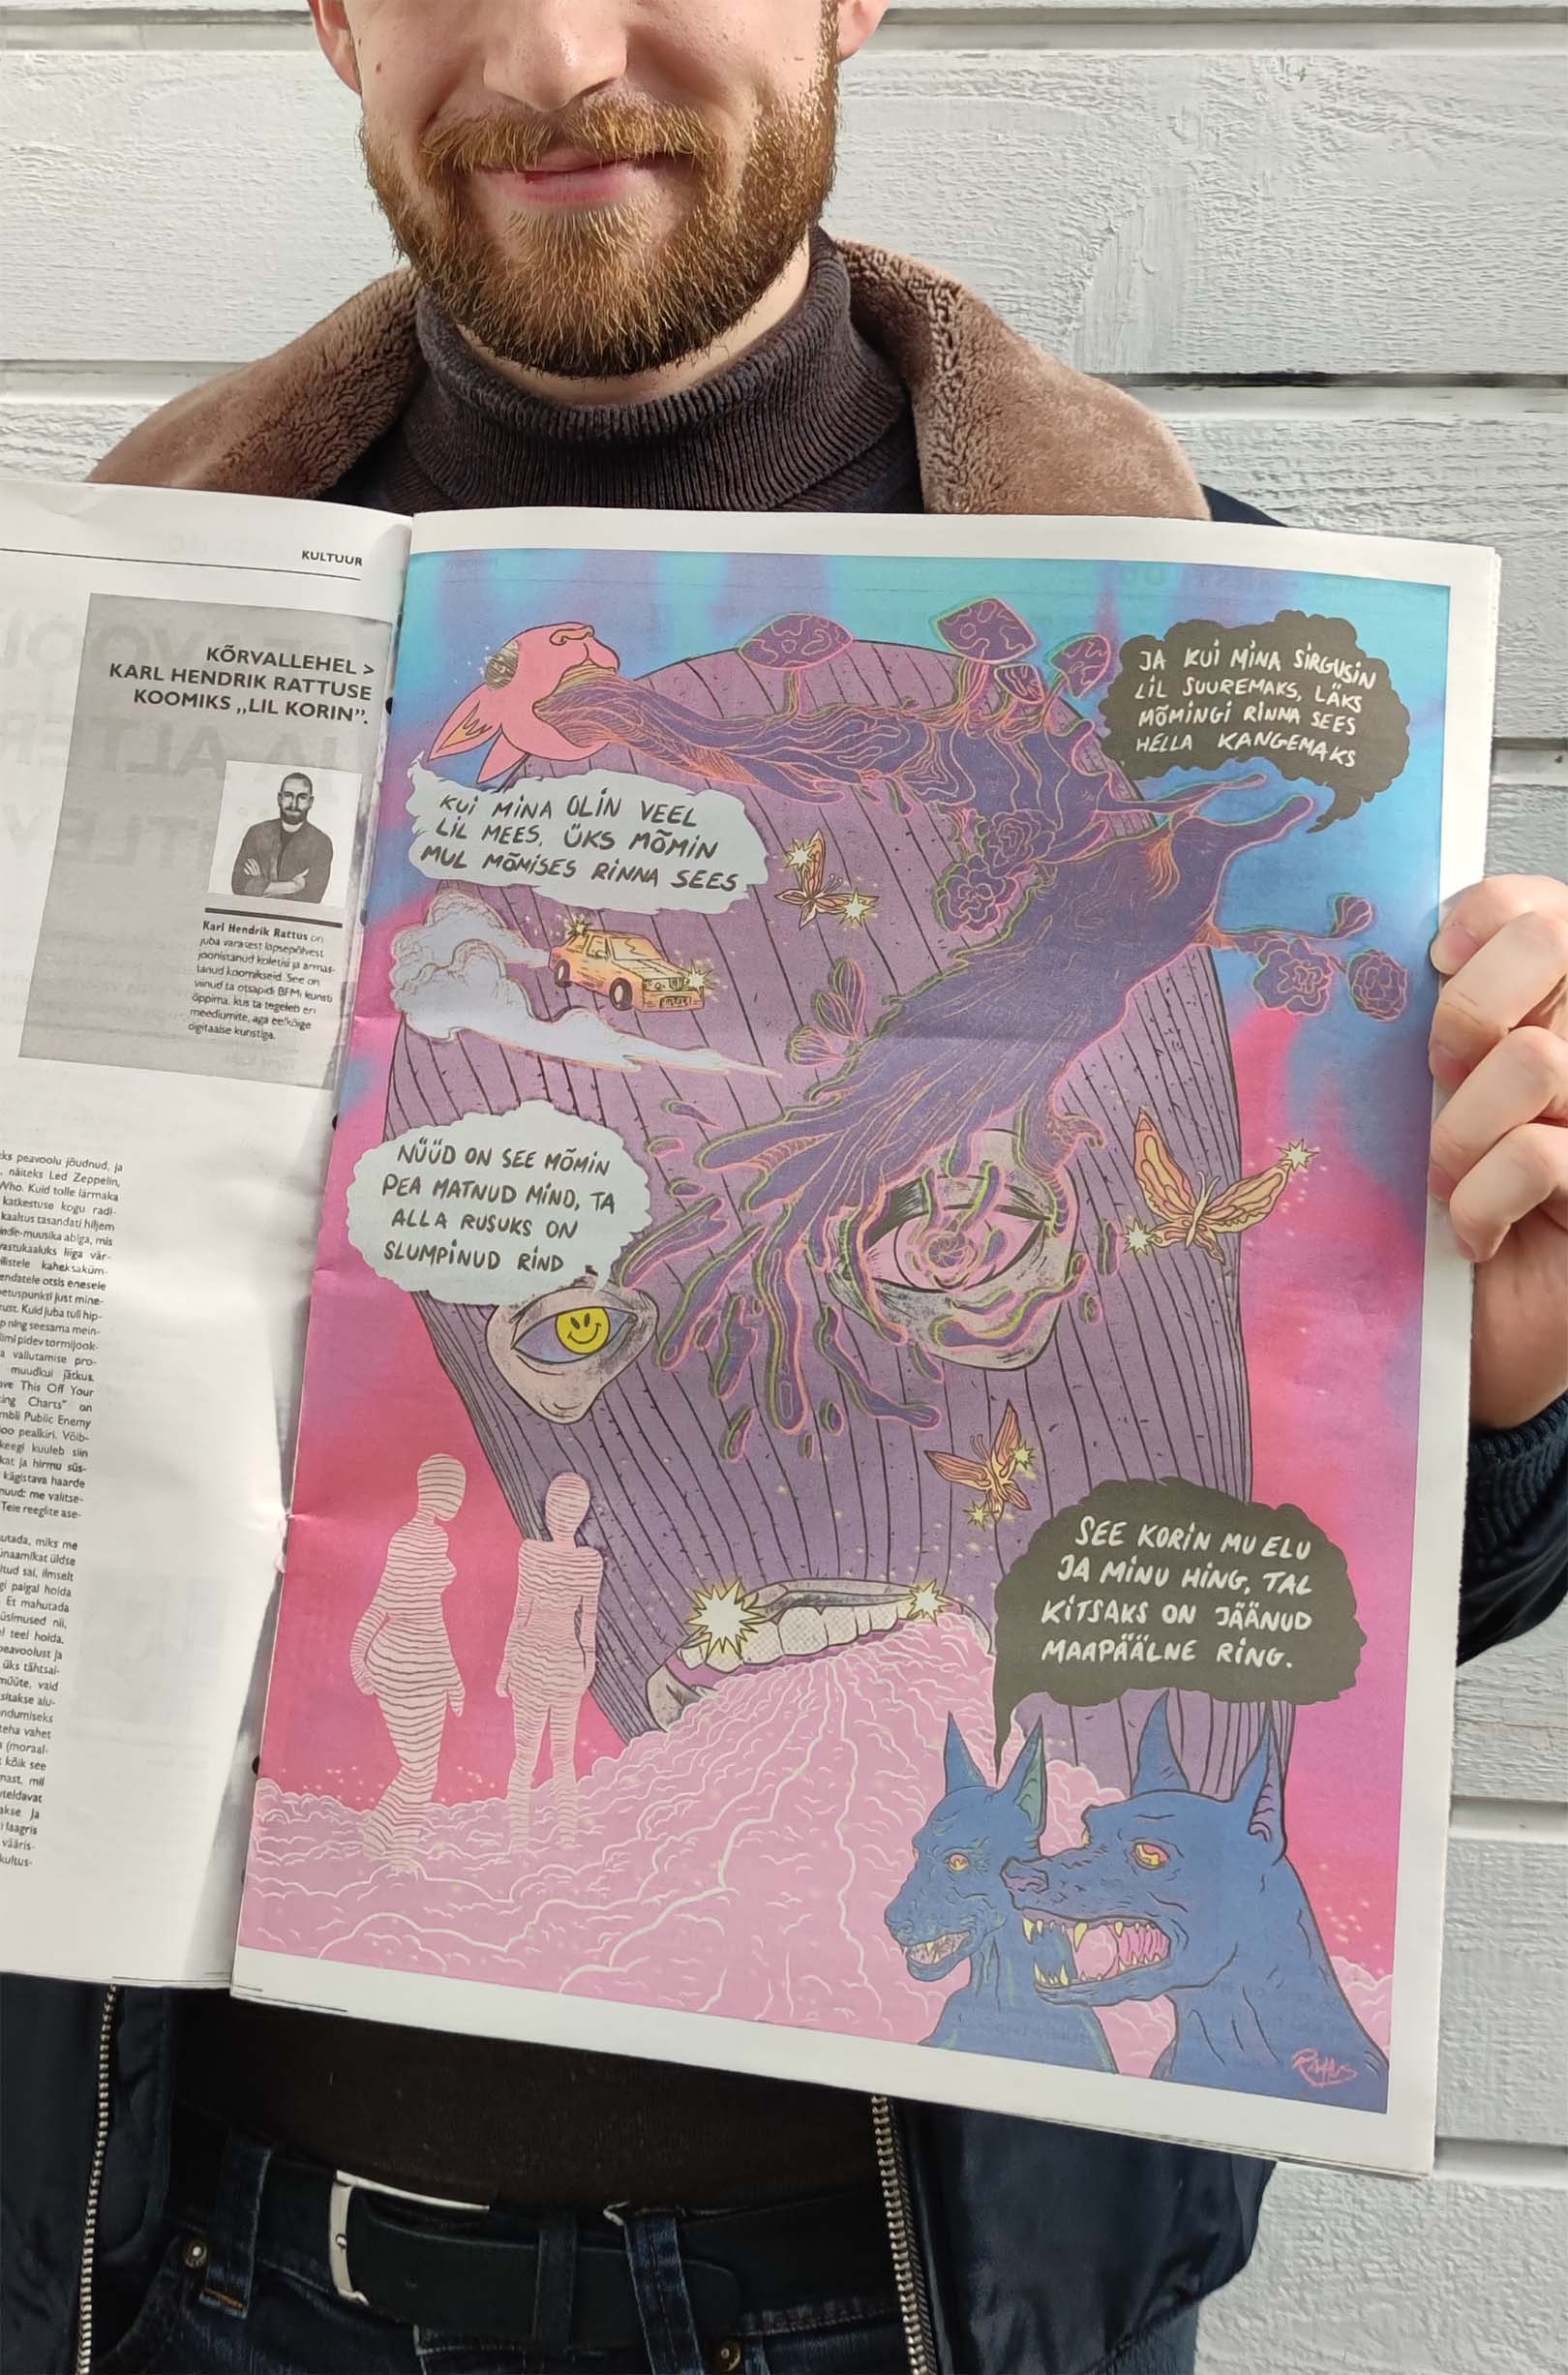 KULTUUR
KÕRVALLEHEL >
KARL HENDRIK RATTUSE
KOOMIKS „LIL KORIN”.
Karl Hendrik Rattus on
juba varasest lapsepõlvest
joonistanud koletisi ja armas-
tanud koomikseid. See on
viinud ta otsapidi BFMi kunsti
õppima, kus ta tegeleb eri
meediumite, aga eelkõige
digitaalse kunstiga.
ks peavoolu jõudnud, ja
näiteks Led Zeppelin,
Who. Kuid tolle lärmaka
katkestuse kogu radi-
kaalsus tasandati hiljem
indie-muusika abiga, mis
vastukaaluks liiga vär-
vilistele kaheksaküm-
nendatele otsis enesele
just mine-
Kuid juba tuli hip-
p ning seesama mein-
pidev tormijook-
a vallutamise pro-
muudkui jätkus.
ave This Off Your
ing Charts” on
mbli Public Enemy
loo pealkiri. Võib-
keegi kuuleb siin
kat ja hirmu süs-
kägistava haarde
nuud: me valitse-
Teie reeglite ase-
utada, miks me
ünaamikat üldse
tud sai, ilmselt
gi paigal hoida
Et mahutada
üsimused nii,
el teel hoida.
peavoolust ja
üks tähtsai-
müüte, vaid
sitakse alu-
ndumiseks
teha vahet
(moraal-
kõik see
mast, mil
uteldavat
akse. Ja
laagris
vääris-
kultus-
KUI MINA OLIN VEEL
LIL MEES, ÜKS MÕMIN
MUL MÕMISES RINNA SEES
JA KUI MINA SIRGUSIN
LIL SUUREMAKS, LÄKS
MÕMINGI RINNA SEES
HELLA KANGEMAKS
NÜÜD ON SEE MÕMIN
PEA MATNUD MIND, TA
ALLA RUSUKS ON
SLUMPINUD RIND
SEE KORIN MU ELU
JA MINU HING, TAL
KITSAKS ON JÄÄNUD
MAAPÄÄLNE RING.
RATTUS